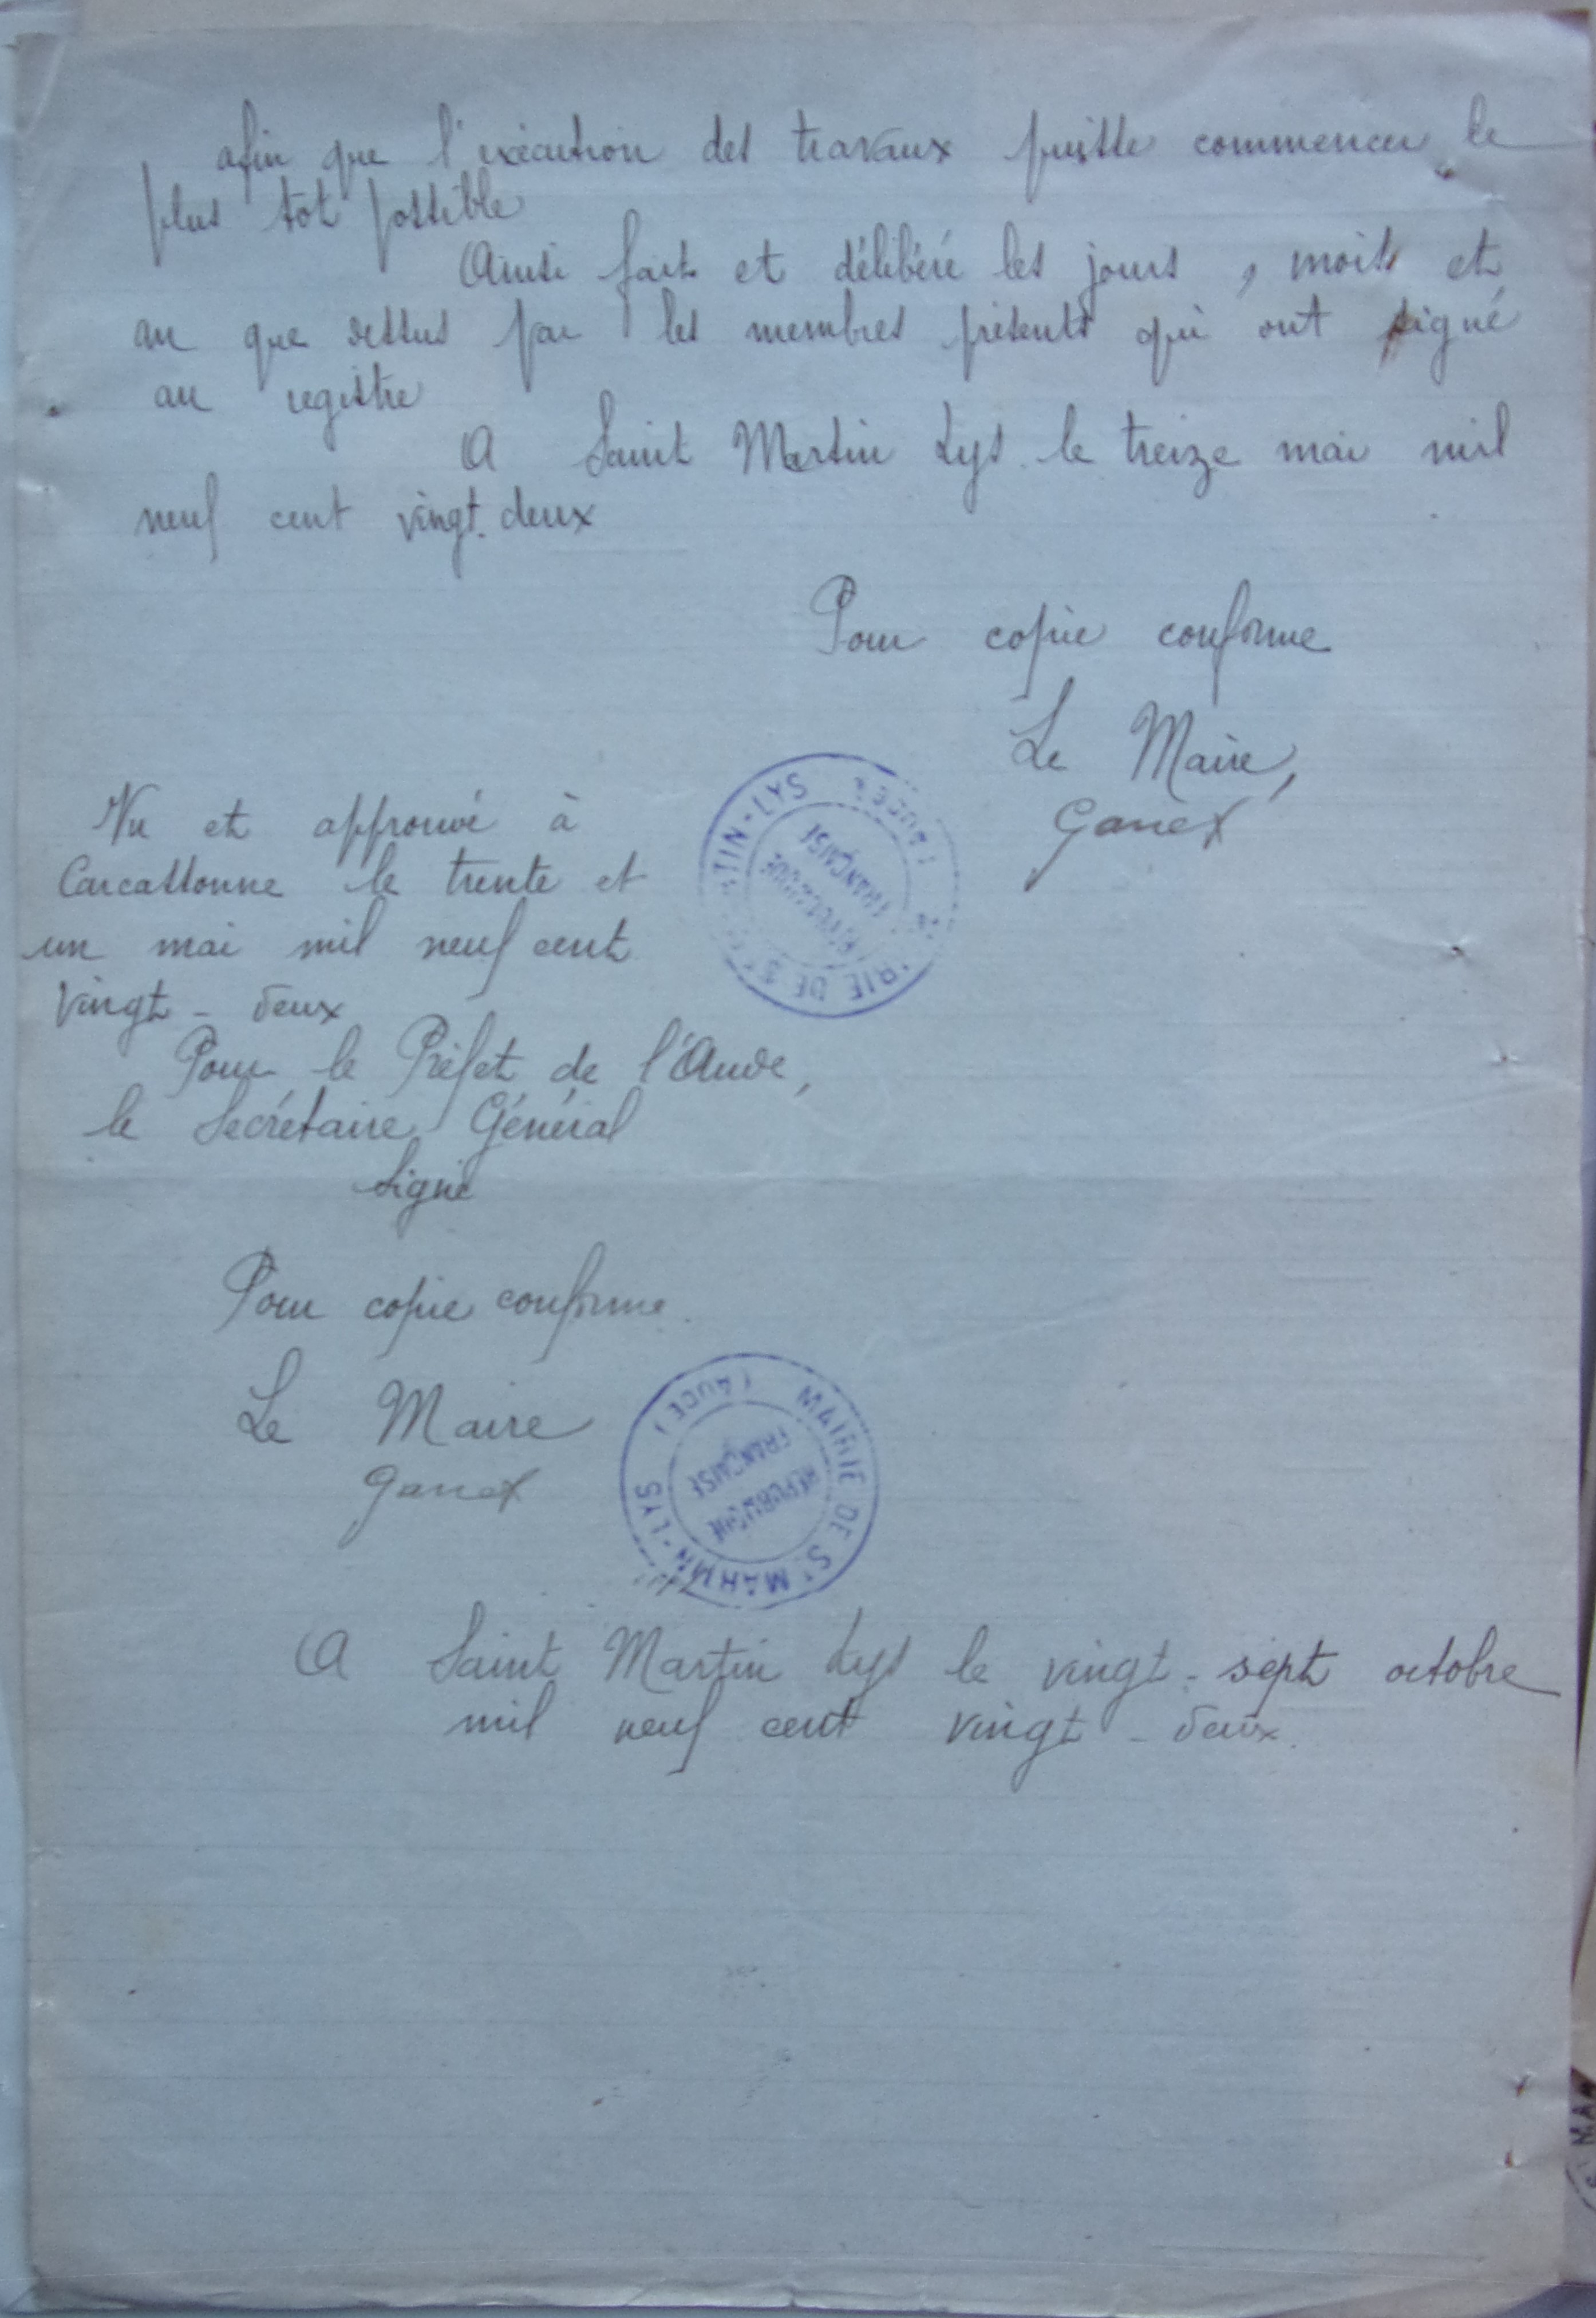 afin que l'exécution des travaux puisse commencer le
plus tot possible
Ainsi fait et délibéré les jours, mois et
an que dessus par les membres présents qui ont signé
au registre
A Saint Martin Lys le treize mai mil
neuf cent vingt-deux
Pour copie conforme
Le Maire,
MAIRIE DE ST MARTIN-LYS (AUDE)
RÉPUBLIQUE
FRANÇAISE
Vu et approuvé à
Carcassonne le trente et
un mai mil neuf cent
vingt-deux
Pour le Préfet de l'Aude,
le Secrétaire Général
Signé
Pour copie conforme.
Le Maire
MAIRIE DE ST MARTIN-LYS (AUDE)
RÉPUBLIQUE
FRANÇAISE
A Saint Martin Lys le vingt-sept octobre
mil neuf cent vingt-deux.